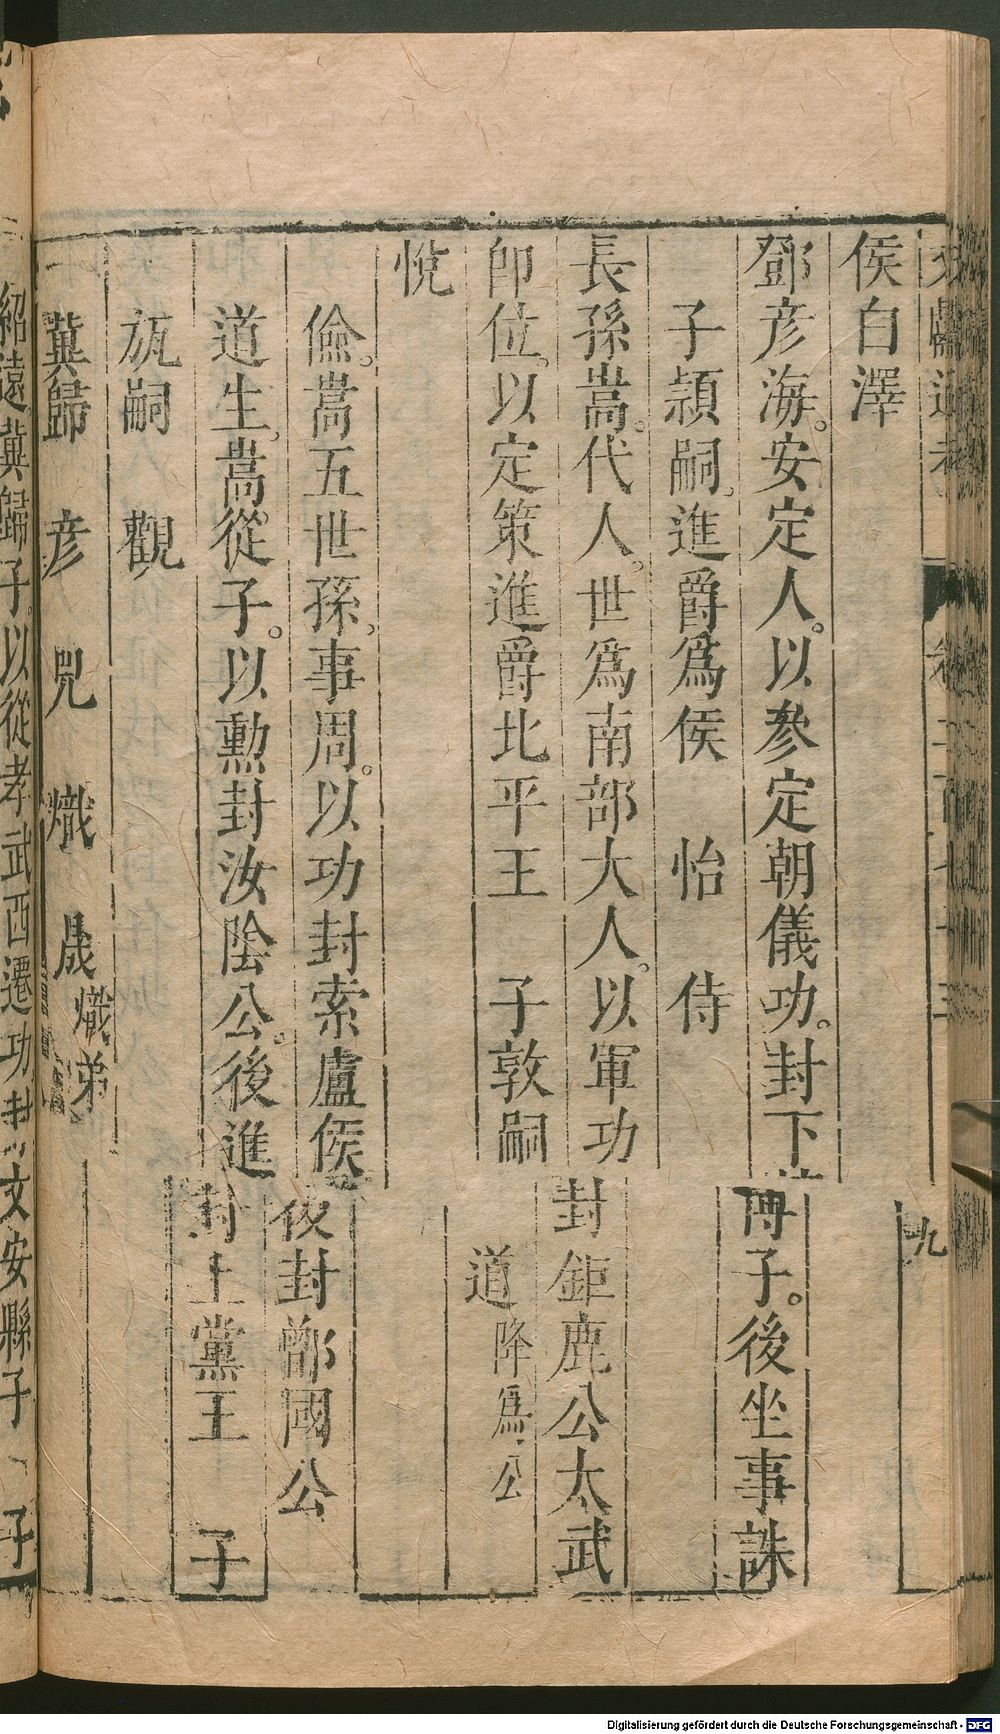 文獻通考
九
侯白澤
鄧彦海。安定人。以參定朝儀功。封下博子。後坐事誅
子頴嗣。進爵爲侯　怡　侍
長孫嵩。代人。世爲南部大人。以軍功封鉅鹿公太武
即位。以定策進爵北平王　子敦嗣　道降爲公
悅
儉。嵩五世孫。事周。以功封索盧侯後封鄫國公
道生。嵩從子。以勲封汝陰公。後進封上黨王　子
瓬嗣　觀
冀歸　彦　兕　熾　晟熾弟
紹遠。冀歸子。以從孝武西遷功封文安縣子　子
Digitalisierung gefördert durch die Deutsche Forschungsgemeinschaft - DFG